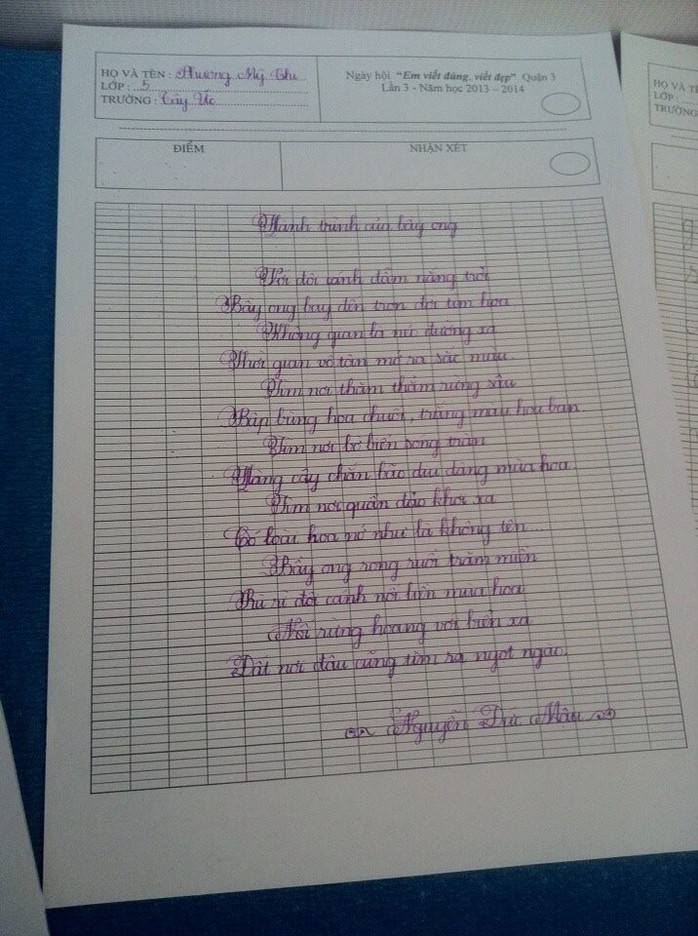 HỌ VÀ TÊN : Phương Mỹ Chi
LỚP : 5
TRƯỜNG : Tây Úc
Ngày hội "Em viết đúng, viết đẹp" Quận 3
Lần 3 - Năm học 2013 – 2014
ĐIỂM
NHẬN XÉT
Hành trình của bầy ong
Với đôi cánh đẫm nắng trời
Bầy ong bay đến trọn đời tìm hoa
Không gian là nẻo đường xa
Thời gian vô tận mở ra sắc màu.
Tìm nơi thăm thẳm rừng sâu
Bập bùng hoa chuối, trắng màu hoa ban.
Tìm nơi bờ biển sóng tràn
Hàng cây chắn bão dịu dàng mùa hoa.
Tìm nơi quần đảo khơi xa
Có loài hoa nở như là không tên...
Bầy ong rong ruổi trăm miền
Rù rì đôi cánh nối liền mùa hoa
Nối rừng hoang với biển xa
Đất nơi đâu cũng tìm ra ngọt ngào.
Nguyễn Đức Mậu
HỌ VÀ TÊ
LỚP :
TRƯỜNG